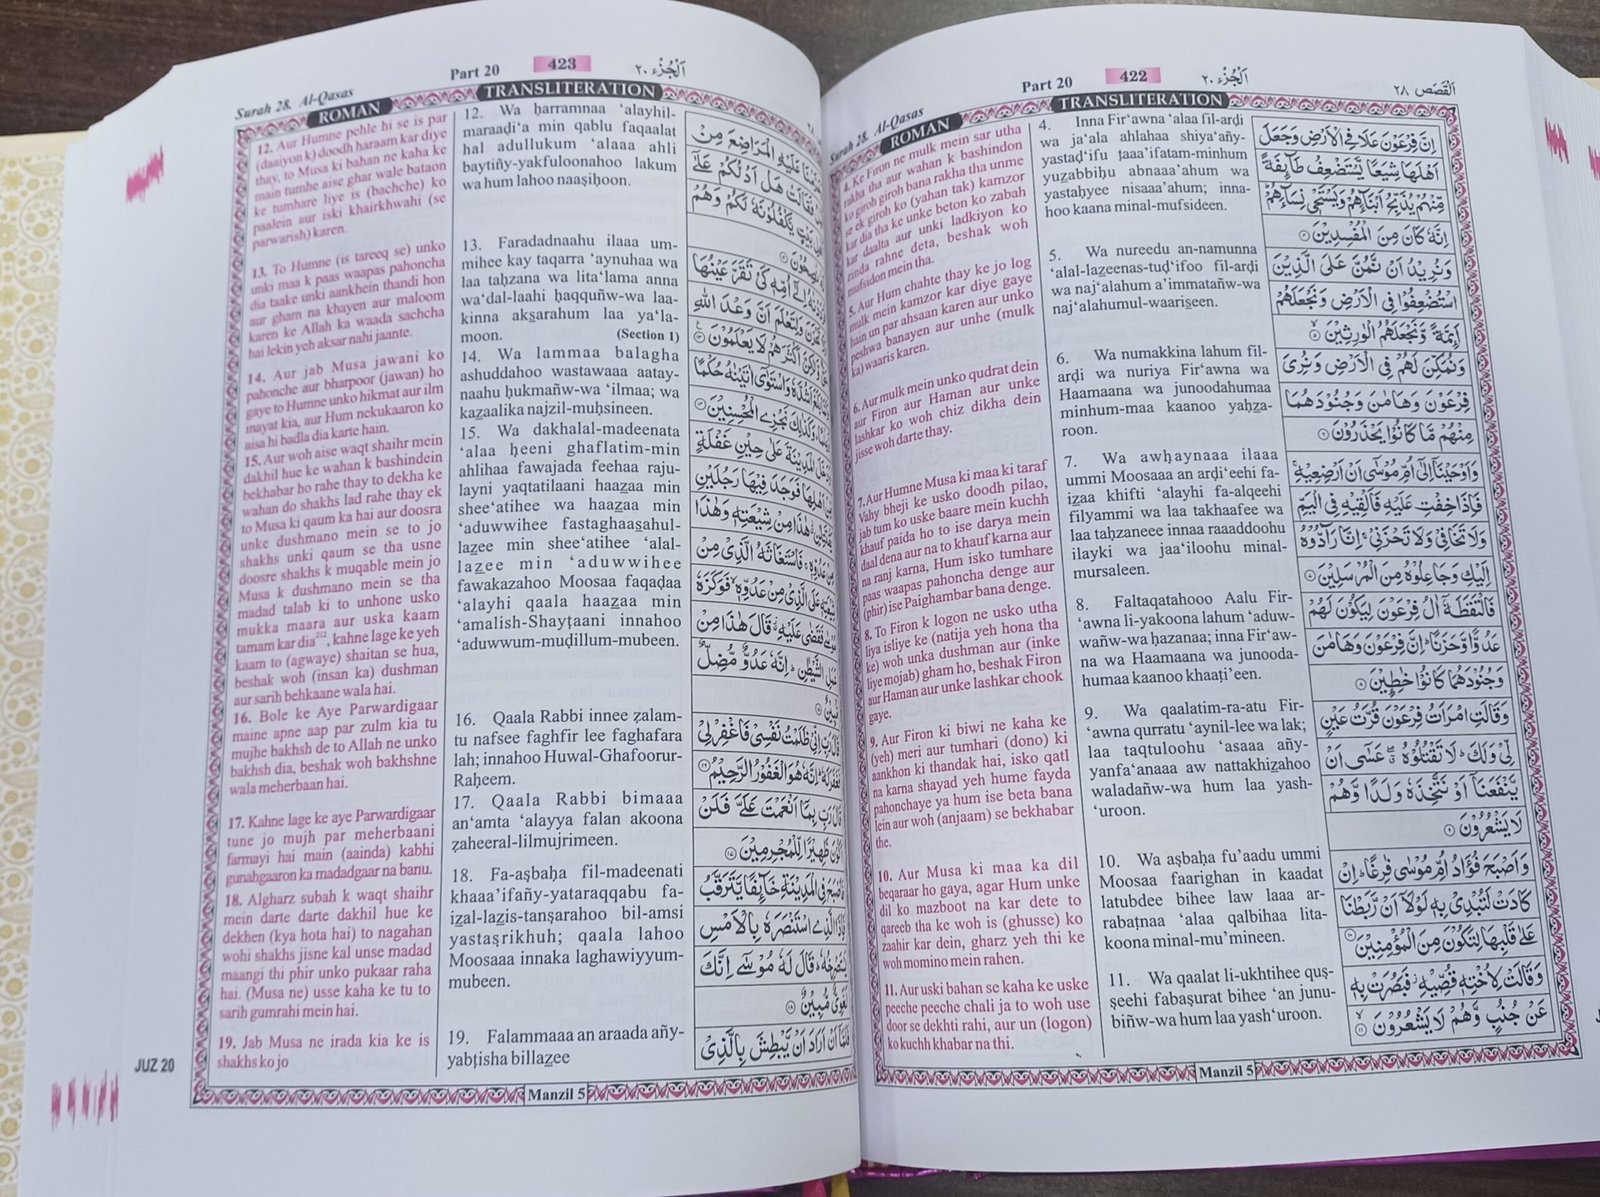 Surah 28. Al-Qasas
Part 20
422
اَلْجُزْء ٢٠
اَلْقَصَص ٢٨
ROMAN
TRANSLITERATION
4. Ke Firon ne mulk mein sar utha
rakha tha aur wahan k bashindon
ko giroh giroh bana rakha tha unme
se ek giroh ko (yahan tak) kamzor
kar dia tha ke unke beton ko zabah
kar daalta aur unki ladkiyon ko
zinda rahne deta, beshak woh
mufsidon mein tha.
5. Aur Hum chahte thay ke jo log
mulk mein kamzor kar diye gaye
hain un par ahsaan karen aur unko
peshwa banayen aur unhe (mulk
ka) waaris karen.
6. Aur mulk mein unko qudrat dein
aur Firon aur Haman aur unke
lashkar ko woh chiz dikha dein
jisse woh darte thay.
7. Aur Humne Musa ki maa ki taraf
Vahy bheji ke usko doodh pilao,
jab tum ko uske baare mein kuchh
khauf paida ho to ise darya mein
daal dena aur na to khauf karna aur
na ranj karna, Hum isko tumhare
paas waapas pahoncha denge aur
(phir) ise Paighambar bana denge.
8. To Firon k logon ne usko utha
liya isliye ke (natija yeh hona tha
ke) woh unka dushman aur (inke
liye mojab) gham ho, beshak Firon
aur Haman aur unke lashkar chook
gaye.
9. Aur Firon ki biwi ne kaha ke
(yeh) meri aur tumhari (dono) ki
aankhon ki thandak hai, isko qatl
na karna shayad yeh hume fayda
pahonchaye ya hum ise beta bana
lein aur woh (anjaam) se bekhabar
the.
10. Aur Musa ki maa ka dil
beqaraar ho gaya, agar Hum unke
dil ko mazboot na kar dete to
qareeb tha ke woh is (ghusse) ko
zaahir kar dein, gharz yeh thi ke
woh momino mein rahen.
11. Aur uski bahan se kaha ke uske
peeche peeche chali ja to woh use
door se dekhti rahi, aur un (logon)
ko kuchh khabar na thi.
4. Inna Fir‘awna ‘alaa fil-arḍi
wa ja‘ala ahlahaa shiya‘añy-
yastaḍ‘ifu ṭaaa’ifatam-minhum
yuẕabbiḥu abnaaa’ahum wa
yastaḥyee nisaaa’ahum; inna-
hoo kaana minal-mufsideen.
5. Wa nureedu an-namunna
‘alal-laẕeenas-tuḍ‘ifoo fil-arḍi
wa naj‘alahum a’immatañw-wa
naj‘alahumul-waariṡeen.
6. Wa numakkina lahum fil-
arḍi wa nuriya Fir‘awna wa
Haamaana wa junoodahumaa
minhum-maa kaanoo yaḥẕa-
roon.
7. Wa awḥaynaaa ilaaa
ummi Moosaaa an arḍi‘eehi fa-
iẕaa khifti ‘alayhi fa-alqeehi
filyammi wa laa takhaafee wa
laa taḥzaneee innaa raaaddoohu
ilayki wa jaa‘iloohu minal-
mursaleen.
8. Faltaqatahooo Aalu Fir-
‘awna li-yakoona lahum ‘aduw-
wañw-wa ḥazanaa; inna Fir‘aw-
na wa Haamaana wa junooda-
humaa kaanoo khaaṭi’een.
9. Wa qaalatim-ra-atu Fir-
‘awna qurratu ‘aynil-lee wa lak;
laa taqtuloohu ‘asaaa añy-
yanfa‘anaaa aw nattakhiẕahoo
waladañw-wa hum laa yash-
‘uroon.
10. Wa aṣbaḥa fu’aadu ummi
Moosaa faarighan in kaadat
latubdee bihee law laaa ar-
rabaṭnaa ‘alaa qalbihaa lita-
koona minal-mu’mineen.
11. Wa qaalat li-ukhtihee quṣ-
ṣeehi fabaṣurat bihee ‘an junu-
biñw-wa hum laa yash‘uroon.
اِنَّ فِرْعَوْنَ عَلَا فِي الْاَرْضِ وَجَعَلَ
اَهْلَهَا شِيَعًا يَّسْتَضْعِفُ طَآئِفَةً
مِّنْهُمْ يُذَبِّحُ اَبْنَآءَهُمْ وَيَسْتَحْيٖ نِسَآءَهُمْ
اِنَّهٗ كَانَ مِنَ الْمُفْسِدِيْنَ
وَنُرِيْدُ اَنْ نَّمُنَّ عَلَى الَّذِيْنَ
اسْتُضْعِفُوْا فِي الْاَرْضِ وَنَجْعَلَهُمْ
اَئِمَّةً وَّنَجْعَلَهُمُ الْوٰرِثِيْنَ
وَنُمَكِّنَ لَهُمْ فِي الْاَرْضِ وَنُرِيَ
فِرْعَوْنَ وَهَامٰنَ وَجُنُوْدَهُمَا
مِنْهُمْ مَّا كَانُوْا يَحْذَرُوْنَ
وَاَوْحَيْنَآ اِلٰٓى اُمِّ مُوْسٰٓى اَنْ اَرْضِعِيْهِ
فَاِذَا خِفْتِ عَلَيْهِ فَاَلْقِيْهِ فِي الْيَمِّ
وَلَا تَخَافِيْ وَلَا تَحْزَنِيْ اِنَّا رَآدُّوْهُ
اِلَيْكِ وَجَاعِلُوْهُ مِنَ الْمُرْسَلِيْنَ
فَالْتَقَطَهٗٓ اٰلُ فِرْعَوْنَ لِيَكُوْنَ لَهُمْ
عَدُوًّا وَّحَزَنًا اِنَّ فِرْعَوْنَ وَهَامٰنَ
وَجُنُوْدَهُمَا كَانُوْا خٰطِئِيْنَ
وَقَالَتِ امْرَاَتُ فِرْعَوْنَ قُرَّتُ عَيْنٍ
لِّيْ وَلَكَ لَا تَقْتُلُوْهُ عَسٰٓى اَنْ
يَّنْفَعَنَآ اَوْ نَتَّخِذَهٗ وَلَدًا وَّهُمْ
لَا يَشْعُرُوْنَ
وَاَصْبَحَ فُؤَادُ اُمِّ مُوْسٰى فٰرِغًا اِنْ
كَادَتْ لَتُبْدِيْ بِهٖ لَوْلَآ اَنْ رَّبَطْنَا
عَلٰى قَلْبِهَا لِتَكُوْنَ مِنَ الْمُؤْمِنِيْنَ
وَقَالَتْ لِاُخْتِهٖ قُصِّيْهِ فَبَصُرَتْ بِهٖ
عَنْ جُنُبٍ وَّهُمْ لَا يَشْعُرُوْنَ
Manzil 5
Surah 28. Al-Qasas
Part 20
423
اَلْجُزْء ٢٠
ROMAN
TRANSLITERATION
12. Aur Humne pehle hi se is par
(daaiyon k) doodh haraam kar diye
thay, to Musa ki bahan ne kaha ke
main tumhe aise ghar wale bataon
ke tumhare liye is (bachche) ko
paalein aur iski khairkhwahi (se
parwarish) karen.
13. To Humne (is tareeq se) unko
unki maa k paas waapas pahoncha
dia taake unki aankhein thandi hon
aur gham na khayen aur maloom
karen ke Allah ka waada sachcha
hai lekin yeh aksar nahi jaante.
14. Aur jab Musa jawani ko
pahonche aur bharpoor (jawan) ho
gaye to Humne unko hikmat aur ilm
inayat kia, aur Hum nekukaaron ko
aisa hi badla dia karte hain.
15. Aur woh aise waqt shaihr mein
dakhil hue ke wahan k bashindein
bekhabar ho rahe thay to dekha ke
wahan do shakhs lad rahe thay ek
to Musa ki qaum ka hai aur doosra
unke dushmano mein se to jo
shakhs unki qaum se tha usne
doosre shakhs k muqable mein jo
Musa k dushmano mein se tha
madad talab ki to unhone usko
mukka maara aur uska kaam
tamam kar dia, kahne lage ke yeh
kaam to (agwaye) shaitan se hua,
beshak woh (insan ka) dushman
aur sarih behkaane wala hai.
16. Bole ke Aye Parwardigaar
maine apne aap par zulm kia tu
mujhe bakhsh de to Allah ne unko
bakhsh dia, beshak woh bakhshne
wala meherbaan hai.
17. Kahne lage ke aye Parwardigaar
tune jo mujh par meherbaani
farmayi hai main (aainda) kabhi
gunahgaaron ka madadgaar na banu.
18. Algharz subah k waqt shaihr
mein darte darte dakhil hue ke
dekhen (kya hota hai) to nagahan
wohi shakhs jisne kal unse madad
maangi thi phir unko pukaar raha
hai. (Musa ne) usse kaha ke tu to
sarih gumrahi mein hai.
19. Jab Musa ne irada kia ke is
shakhs ko jo
12. Wa ḥarramnaa ‘alayhil-
maraaḍi‘a min qablu faqaalat
hal adullukum ‘alaaa ahli
baytiñy-yakfuloonahoo lakum
wa hum lahoo naaṣiḥoon.
13. Faradadnaahu ilaaa um-
mihee kay taqarra ‘aynuhaa wa
laa taḥzana wa lita‘lama anna
wa‘dal-laahi ḥaqquñw-wa laa-
kinna akṡarahum laa ya‘la-
moon. (Section 1)
14. Wa lammaa balagha
ashuddahoo wastawaaa aatay-
naahu ḥukmañw-wa ‘ilmaa; wa
kaẕaalika najzil-muḥsineen.
15. Wa dakhalal-madeenata
‘alaa ḥeeni ghaflatim-min
ahlihaa fawajada feehaa raju-
layni yaqtatilaani haaẕaa min
shee‘atihee wa haaẕaa min
‘aduwwihee fastaghaaṡahul-
laẕee min shee‘atihee ‘alal-
laẕee min ‘aduwwihee
fawakazahoo Moosaa faqaḍaa
‘alayhi qaala haaẕaa min
‘amalish-Shayṭaani innahoo
‘aduwwum-muḍillum-mubeen.
16. Qaala Rabbi innee ẓalam-
tu nafsee faghfir lee faghafara
lah; innahoo Huwal-Ghafoorur-
Raḥeem.
17. Qaala Rabbi bimaaa
an‘amta ‘alayya falan akoona
ẓaheeral-lilmujrimeen.
18. Fa-aṣbaḥa fil-madeenati
khaaa’ifañy-yataraqqabu fa-
iẕal-laẕis-tanṣarahoo bil-amsi
yastaṣrikhuh; qaala lahoo
Moosaaa innaka laghawiyyum-
mubeen.
19. Falammaaa an araada añy-
yabṭisha billaẕee
الْمَرَاضِعَ مِنْ
فَقَالَتْ هَلْ اَدُلُّكُمْ عَلٰٓى
بَيْتٍ يَّكْفُلُوْنَهٗ لَكُمْ وَهُمْ
اُمِّهٖ كَيْ تَقَرَّ عَيْنُهَا
وَلِتَعْلَمَ اَنَّ وَعْدَ اللّٰهِ
اَكْثَرَهُمْ لَا يَعْلَمُوْنَ
اَشُدَّهٗ وَاسْتَوٰٓى اٰتَيْنٰهُ حُكْمًا
وَكَذٰلِكَ نَجْزِي الْمُحْسِنِيْنَ
الْمَدِيْنَةَ عَلٰى حِيْنِ غَفْلَةٍ
فَوَجَدَ فِيْهَا رَجُلَيْنِ
هٰذَا مِنْ شِيْعَتِهٖ وَهٰذَا
فَاسْتَغَاثَهُ الَّذِيْ مِنْ
عَلَى الَّذِيْ مِنْ عَدُوِّهٖ فَوَكَزَهٗ
فَقَضٰى عَلَيْهِ قَالَ هٰذَا مِنْ
الشَّيْطٰنِ اِنَّهٗ عَدُوٌّ مُّضِلٌّ
رَبِّ اِنِّيْ ظَلَمْتُ نَفْسِيْ فَاغْفِرْ لِيْ
اِنَّهٗ هُوَ الْغَفُوْرُ الرَّحِيْمُ
رَبِّ بِمَآ اَنْعَمْتَ عَلَيَّ فَلَنْ
ظَهِيْرًا لِّلْمُجْرِمِيْنَ
فِي الْمَدِيْنَةِ خَآئِفًا يَّتَرَقَّبُ
الَّذِي اسْتَنْصَرَهٗ بِالْاَمْسِ
قَالَ لَهٗ مُوْسٰٓى اِنَّكَ
مُّبِيْنٌ
اَنْ اَرَادَ اَنْ يَّبْطِشَ بِالَّذِيْ
JUZ 20
Manzil 5